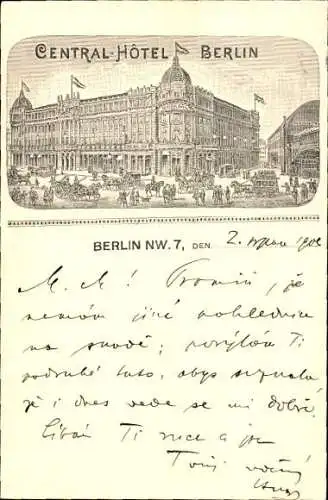 CENTRAL-HÔTEL BERLIN
BERLIN NW. 7, DEN 2. srpna 190
M. M! Promiň, že
nemám jiné pohlednice
na skladě; posýlám Ti
podruhé tuto, abys seznala
že i dnes vede se mi dobře.
Líbám Ti ruce a jsem
Tvůj věrný